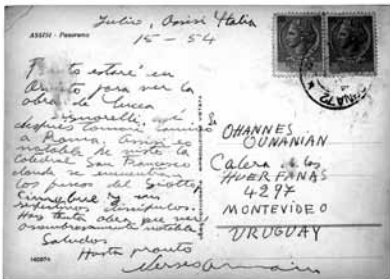 Julio, Assisi Italia
15 - 54
ASSISI - Panorama
Pronto estaré en
para ver la
obra de Lucca
Signorelli, de
después tomaré camino
a Roma. Assisi es
notable he visto la
Catedral San Francesco
donde se encuentran
los frescos del Giotto,
Cimabue y sus
discípulos.
Hay tanta obra que ver
asombrosamente notable
Saludos
Hasta pronto
OHANNES
OUNANIAN
Calera de las
HUERFANAS
4297
MONTEVIDEO
URUGUAY